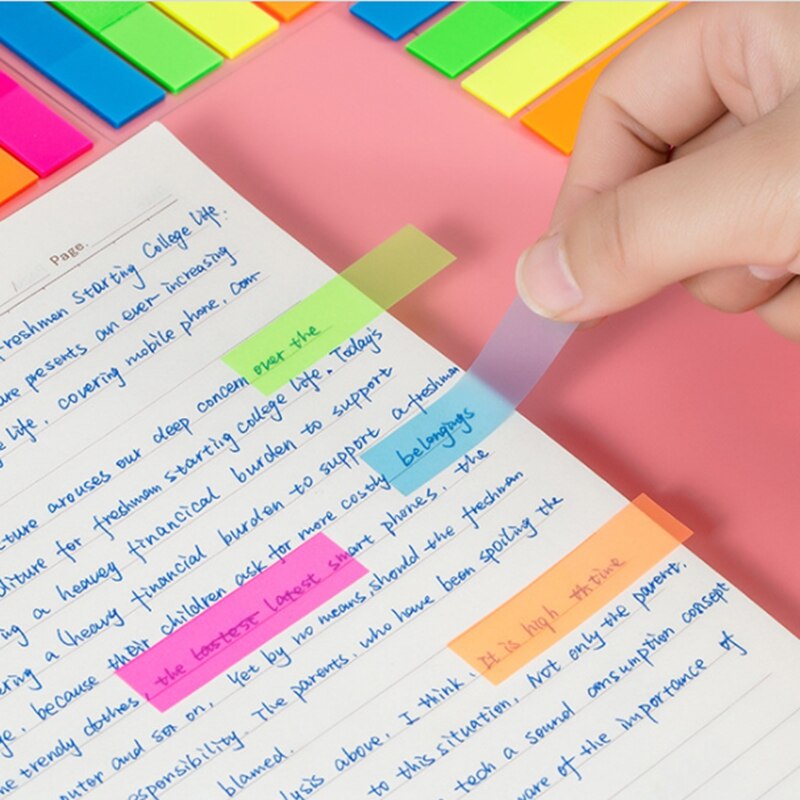 Page.
freshmen starting College life.
are presents an ever increasing
life, covering mobile phone, com-
over the
cture arouses our deep concern
life. Today's
diture for freshman starting college
ing a heavey financical burden to support
ering a heavy financial burden to support a freshman
belongings
ge, because their children ask for more costly
the trendy clothes, the lastest latest smart phones. the
puter and sot on. Yet by no means should the freshman
sponsibility. The parents, who have been spoiling the
blamed.
lysis above, I think, It is high th time
to this situation. Not only the parent.
tech a sound consumption consept
ware of the importance of